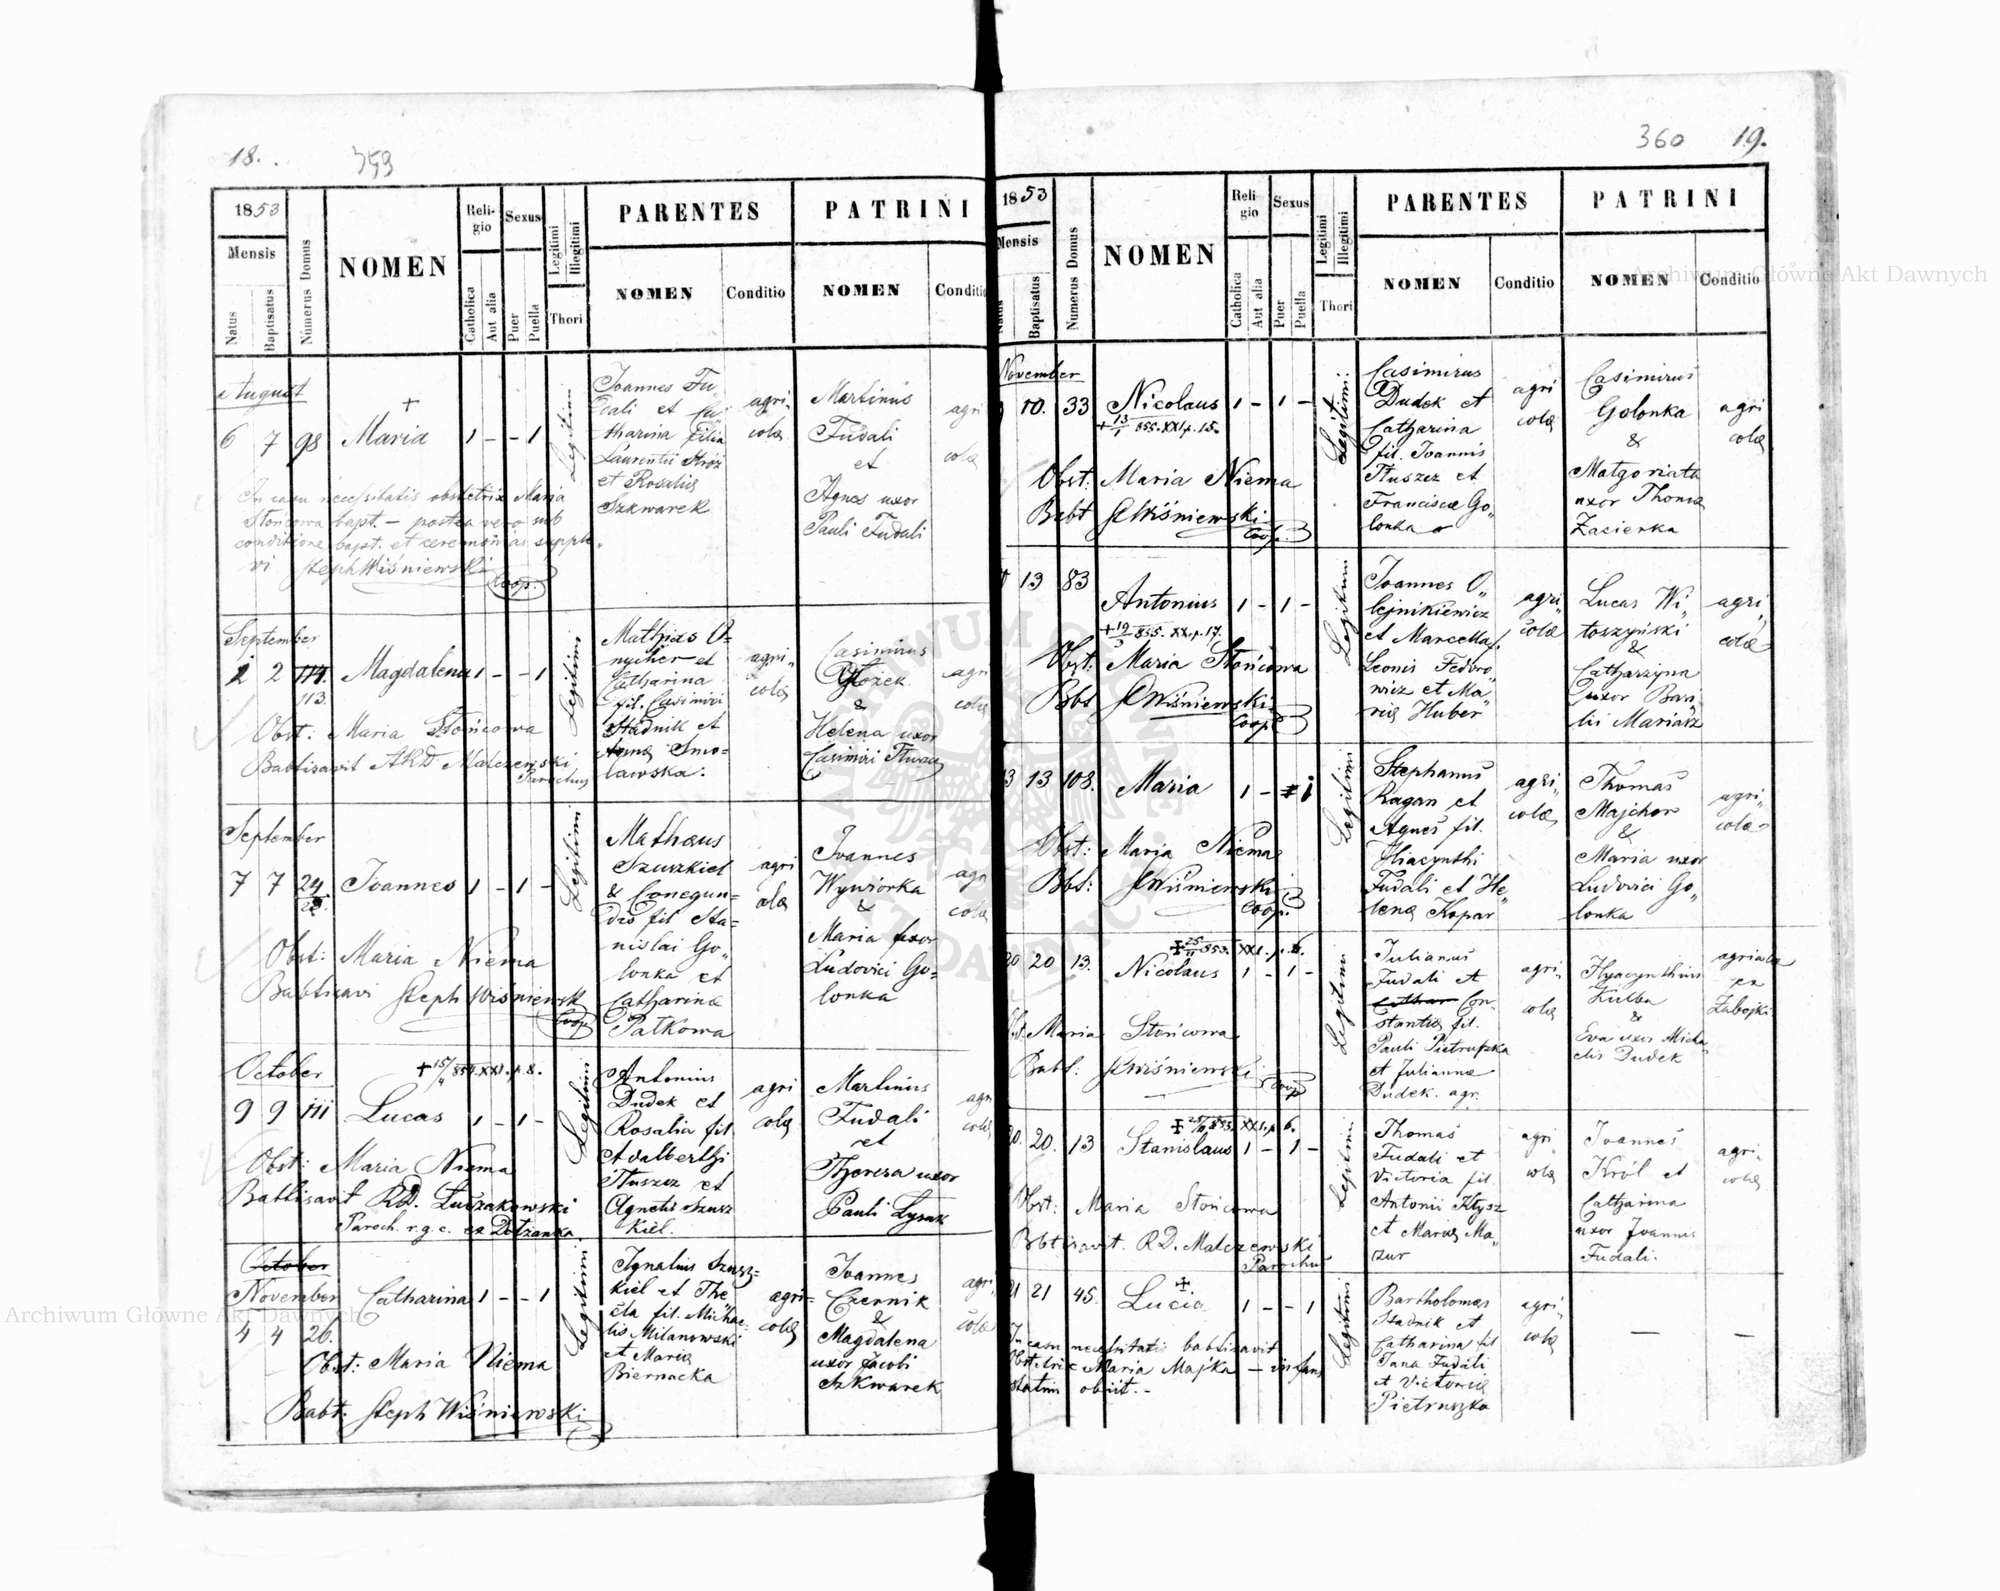 18. 359
1853
Mensis
Natus
Baptisatus
Numerus Domus
NOMEN
Religio
Catholica
Aut alia
Sexus
Puer
Puella
Legitimi
Illegitimi
Thori
PARENTES
NOMEN
Conditio
PATRINI
NOMEN
Conditio
August
6 7 98 Maria 1 - - 1
Legitimi
Joannes Fu
dali et Ca
tharina filia
Laurentii Stróż
et Rosaliæ
Szkwarek
agri
colæ
Martinus
Fudali
et
Agnes uxor
Pauli Fudali
agri
colæ
In casu necessitatis obstetrix Maria
Słońcowa bapt. - postea vero sub
conditione bapt. et ceremonias supple
vi Steph Wiśniewski
Coop.
September
2 2 114. Magdalena 1 - - 1
113.
Legitimi
Mathias O=
nycher et
Catharina
fil. Casimiri
Stadnik et
Annæ Smo=
lawska.
agri
colæ
Casimirus
&
Helena uxor
Casimiri Tłuszcz
agri
colæ
Obst: Maria Słońcowa
Babtisavit ARD Malczewski
Parochus
September
7 7 24 Joannes 1 - 1 -
Legitimi
Mathæus
Szuszkiel
& Conegun=
dis fil Sta=
nislai Go„
lonka et
Catharina
Patkowa
agri
colæ
Joannes
Wywiorka
&
Maria uxor
Ludovici Go=
lonka
agri
colæ
Obst: Maria Niema
Babtisavi Steph Wiśniewski
Coop
October
9 9 111 Lucas 1 - 1 -
Legitimi
Antonius
Dudek et
Rosalia fil
Adalberthi
Tłuszcz et
Agnetis Szusz
kiel.
agri
colæ
Martinus
Fudali
et
Theresa uxor
Pauli Lysak
agri
colæ
Obst: Maria Niema
Babtisavit RD. Łuczakowski
Paroch. r.g.c. ex Dołżanka
October
November Catharina 1 - - 1
4 4 26.
Legitimi
Ignatius Szusz=
kiel et The
cla fil. Michae
lis Milanowski
et Mariæ
Biernacka
agri=
colæ
Joannes
Czernik
&
Magdalena
uxor Jacobi
Szkwarek
agri
colæ
Obst: Maria Niema
Babt: Steph Wiśniewski
360 19.
1853
Mensis
Natus
Baptisatus
Numerus Domus
NOMEN
Religio
Catholica
Aut alia
Sexus
Puer
Puella
Legitimi
Illegitimi
Thori
PARENTES
NOMEN
Conditio
PATRINI
NOMEN
Conditio
November
10. 33 Nicolaus 1 - 1 -
Legitimi
Casimirus
Dudek et
Catharina
fil. Joannis
Tłuszcz et
Franciscæ Go„
lonka
agri
colæ
Casimirus
Golonka
&
Małgoriata
uxor Thomæ
Zasierka
agri
colæ
Obst: Maria Niema
Babt SWiśniewski
Coop.
13 83
Antonius 1 - 1 -
Legitimi
Joannes O„
lejnikiewicz
et Marcella f.
Leonis Fedoro
wicz et Ma
riæ Huber
agri
colæ
Lucas Wi„
toszyński
&
Catharzyna
uxor Basi
lii Mariasz
agri
colæ
Obst: Maria Słońcowa
Bbt SWiśniewski
Coop
13 13 108. Maria 1 - 1
Legitimi
Stephanus
Kagan et
Agnes fil.
Hiacynthi
Fudali et He„
lenæ Kopar
agri
colæ
Thomas
Majcher
&
Maria uxor
Ludovici Go„
lonka
agri
colæ
Obst: Maria Niema
Bbt: SWiśniewski
Coop.
20 20 13. Nicolaus 1 - 1 -
Legitimi
Julianus
Fudali et
Con
stantia fil.
Pauli Pietruszka
et Julianna
Dudek. agr.
agri
colæ
Hyacynthus
Kulba
&
Eva uxor Micha
elis Dudek
agricola
ex
Zabojki
Maria Słońcowa
Babt: SWiśniewski
Coop
20. 20. 13 Stanislaus 1 - 1 -
Legitimi
Thomas
Fudali et
Victoria fil.
Antonii Kłysz
et Mariæ Ma„
zur
agri
colæ
Joannes
Król et
Catharina
uxor Joannis
Fudali.
agri
colæ
Obst: Maria Słońcowa
Bbtisavit. RD. Malczewski
Parochus
21 21 45. Lucia 1 - - 1
Legitimi
Bartholomæus
Stadnik et
Catharina fil
Jana Fudali
et Victoriæ
Pietruszka
agri
colæ
— —
In casu necessitatis babtisavit
Obstetrix Maria Majka - infans
statim obiit. -
Archiwum Główne Akt Dawnych
Archiwum Główne Akt Dawnych
ARCHIWUM GŁÓWNE AKT DAWNYCH